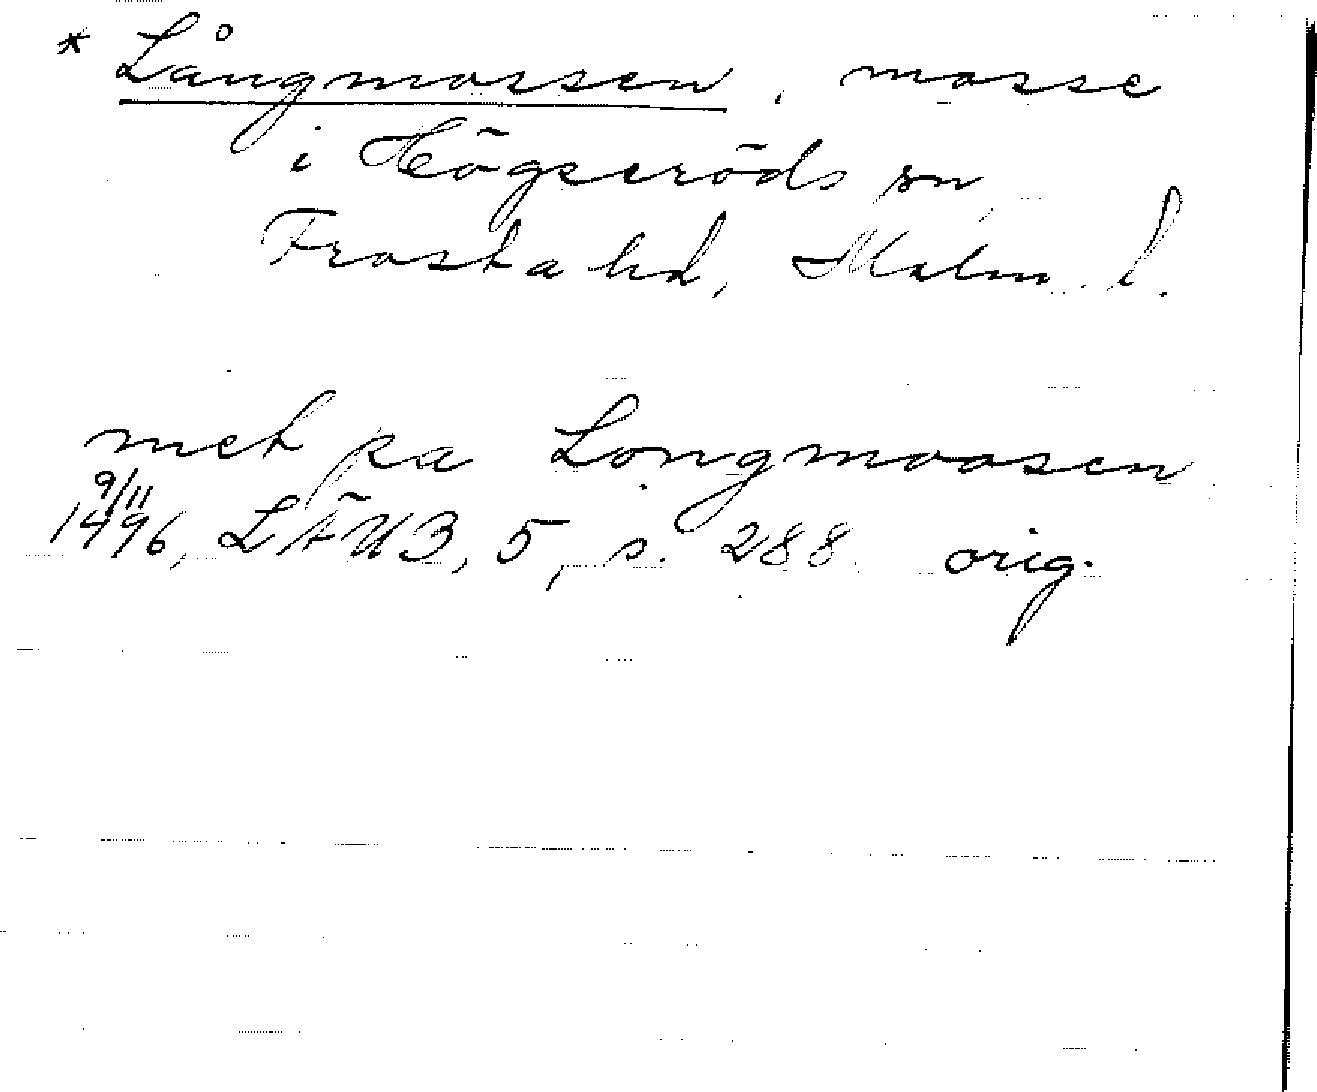 * Långmossen, mosse
i Högseröds sn,
Frosta hd, Malm. l.
met pa Longmoosen
9/11
1496, LÄUB, 5, s. 288. orig.